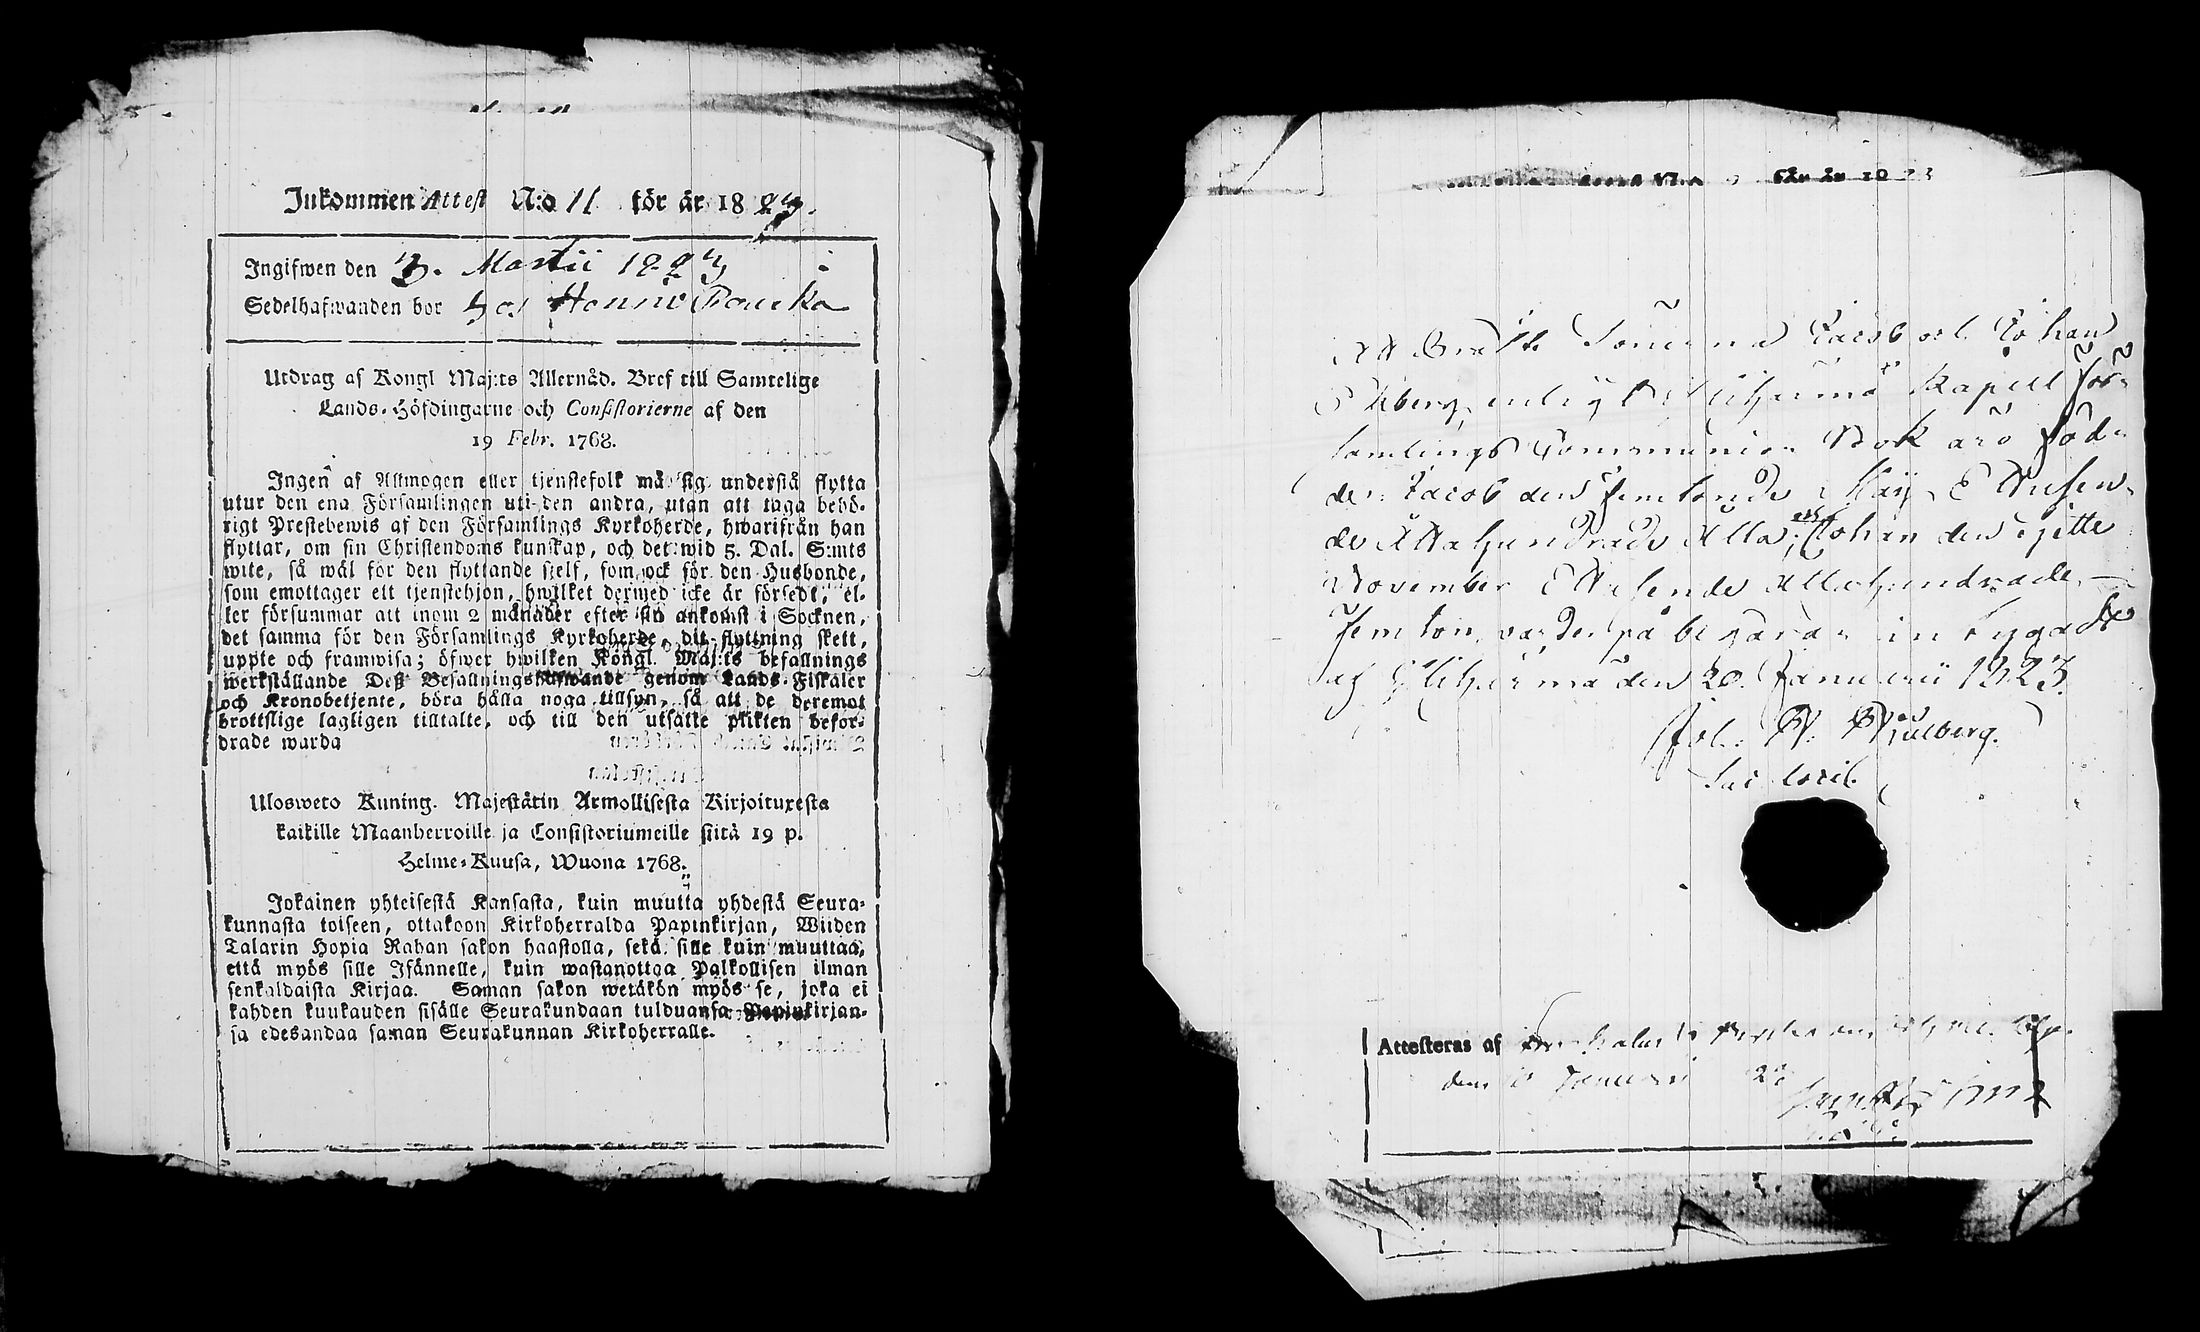 Inkommen Attest N:o 11 för år 1823.
Ingifwen den 3. Martii 1823
Sedelhafwanden bor hos
Utdrag af Kongl Maj:ts Allernåd. Bref till Samtelige
Lands-Höfdingarne och Consistorierne af den
19 Febr. 1768.
Ingen af Allmogen eller tjenstefolk må sig understå flytta
utur den ena Församlingen uti den andra, utan att taga behö-
rigt Prestebewis af den Församlings Kyrkoherde, hwarifrån han
flyttar, om sin Christendoms kunskap, och det wid 5. Dal. S:mts
wite, så wäl för den flyttande sjelf, som ock för den Husbonde,
som emottager ett tjenstehjon, hwilket dermed icke är försedt, el-
ler försummar att inom 2 månader efter sin ankomst i Socknen,
det samma för den Församlings Kyrkoherde, dit flyttning skett,
uppte och framwisa; öfwer hwilken Kongl. Maj:ts befallnings
werkställande Deß Befallningshafwande genom Lands-Fiskaler
och Kronobetjente, böra hålla noga tillsyn, så att de deremot
brottslige lagligen tilltalte, och till den utsatte plikten befor-
drade warda
Ulosweto Kuning. Majestätin Armollisesta Kirjoituxesta
kaikille Maanherroille ja Consistoriumeille siitä 19 p.
Helme-Kuusa, Wuona 1768.
Jokainen yhteisestä Kansasta, kuin muutta yhdestä Seura-
kunnasta toiseen, ottakoon Kirkoherralda Papinkirjan, Wiiden
Talarin Hopia Rahan sakon haastolla, sekä sille kuin muuttaa,
että myös sille Isännelle, kuin wastanottaa Palkollisen ilman
senkaldaista Kirjaa. Saman sakon wetäkön myös se, joka ei
kahden kuukauden sisälle Seurakundaan tulduansa Papinkirjan-
sa edesandaa saman Seurakunnan Kirkoherralle.
Att Sönerna Jacob och Johan
Ekberg, enligt Ylihärmä Kapell För-
samlings Communion Bok äro föd-
de: Jacob den femtonde Maij Ettusen-
de Ottahundrade Otta, och Johan den sjette
November Ettusende Ottahundrade
Femton, varder på begäran intygadt
af Ylihärmä den 20 Januarii 1823.
Attesteras af
den Januari 23